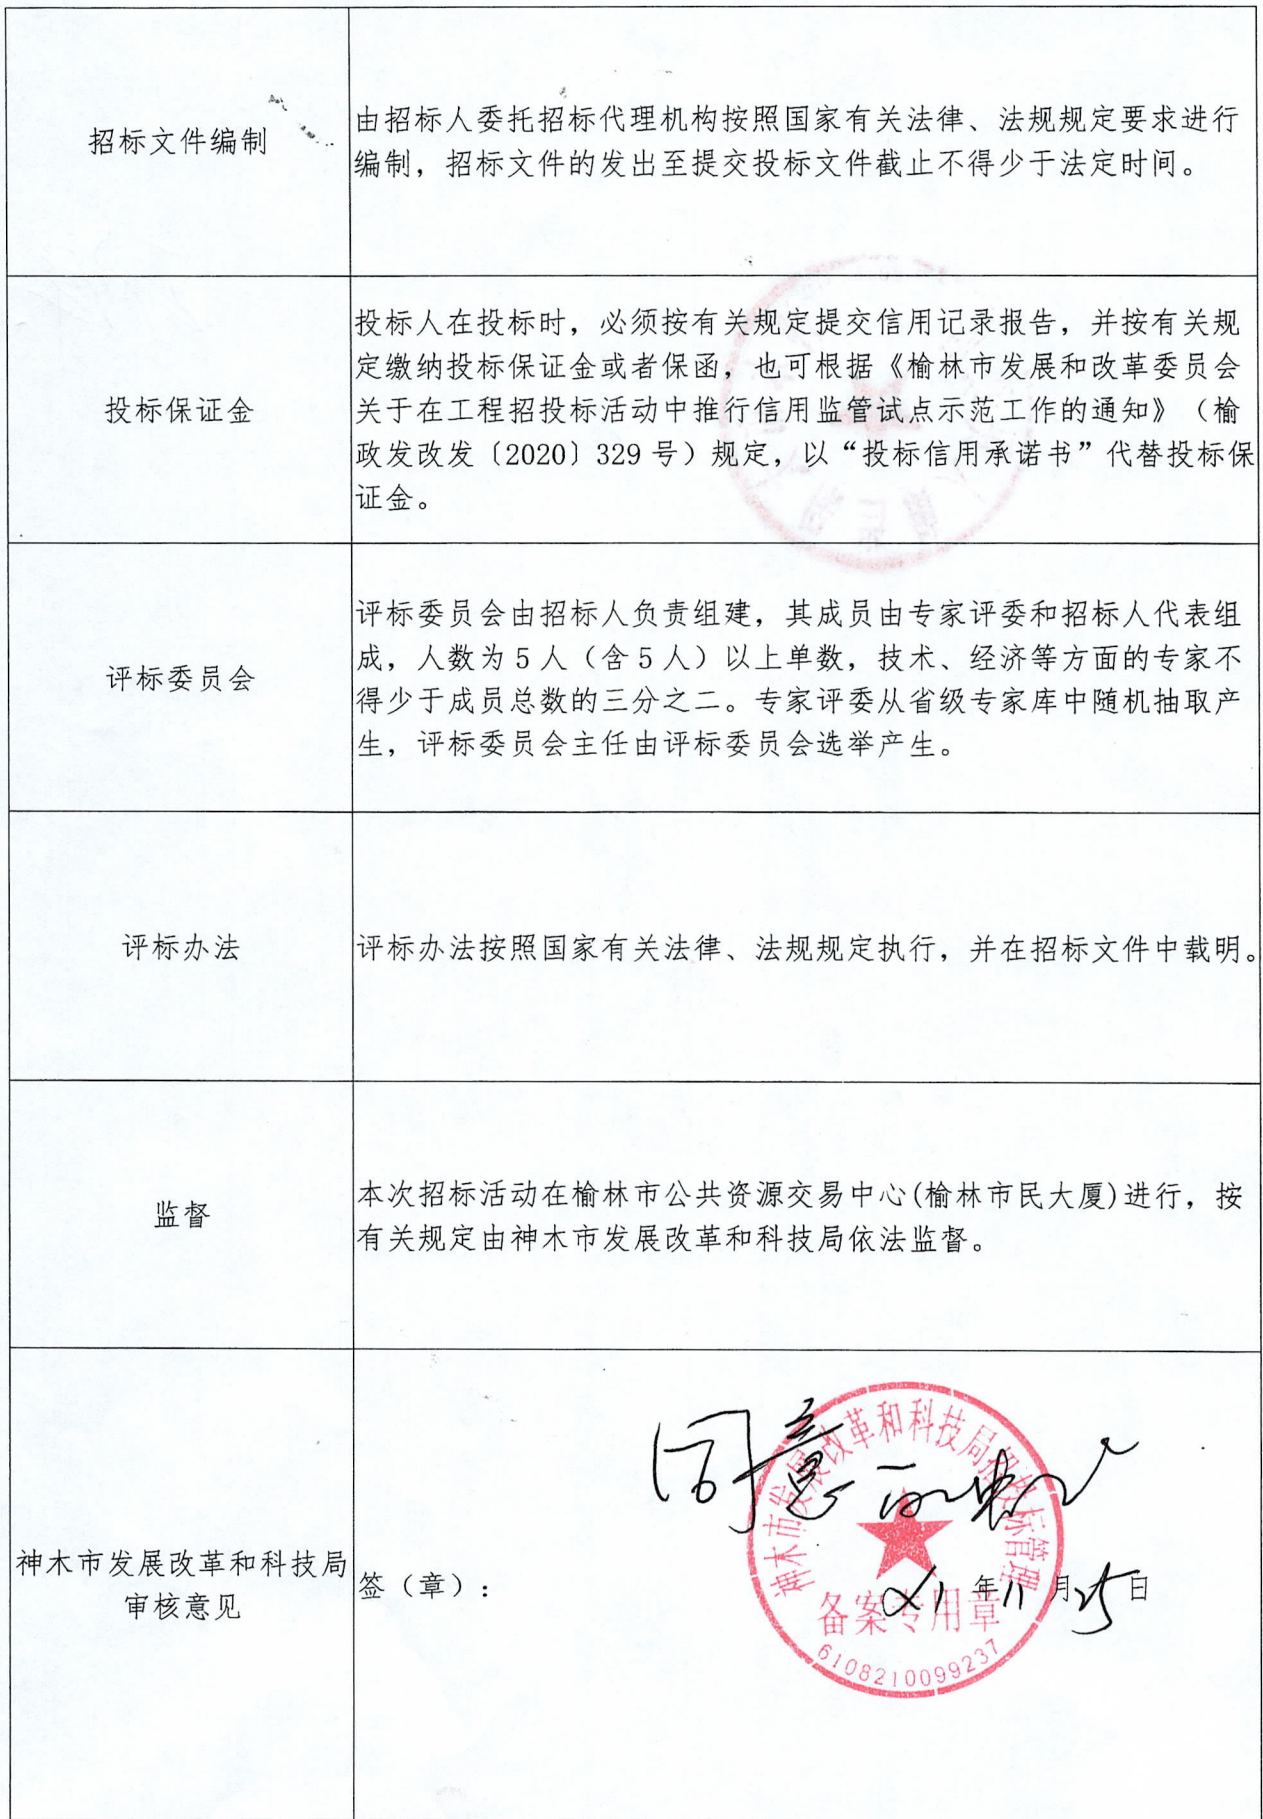 招标文件编制
由招标人委托招标代理机构按照国家有关法律、法规规定要求进行
编制，招标文件的发出至提交投标文件截止不得少于法定时间。
投标保证金
投标人在投标时，必须按有关规定提交信用记录报告，并按有关规
定缴纳投标保证金或者保函，也可根据《榆林市发展和改革委员会
关于在工程招投标活动中推行信用监管试点示范工作的通知》（榆
政发改发〔2020〕329号）规定，以“投标信用承诺书”代替投标保
证金。
评标委员会
评标委员会由招标人负责组建，其成员由专家评委和招标人代表组
成，人数为5人（含5人）以上单数，技术、经济等方面的专家不
得少于成员总数的三分之二。专家评委从省级专家库中随机抽取产
生，评标委员会主任由评标委员会选举产生。
评标办法
评标办法按照国家有关法律、法规规定执行，并在招标文件中载明。
监督
本次招标活动在榆林市公共资源交易中心(榆林市民大厦)进行，按
有关规定由神木市发展改革和科技局依法监督。
神木市发展改革和科技局
审核意见
同意
签（章）：
21年11月25日
神木市发展改革和科技局招投标管理
备案专用章
6108210099237